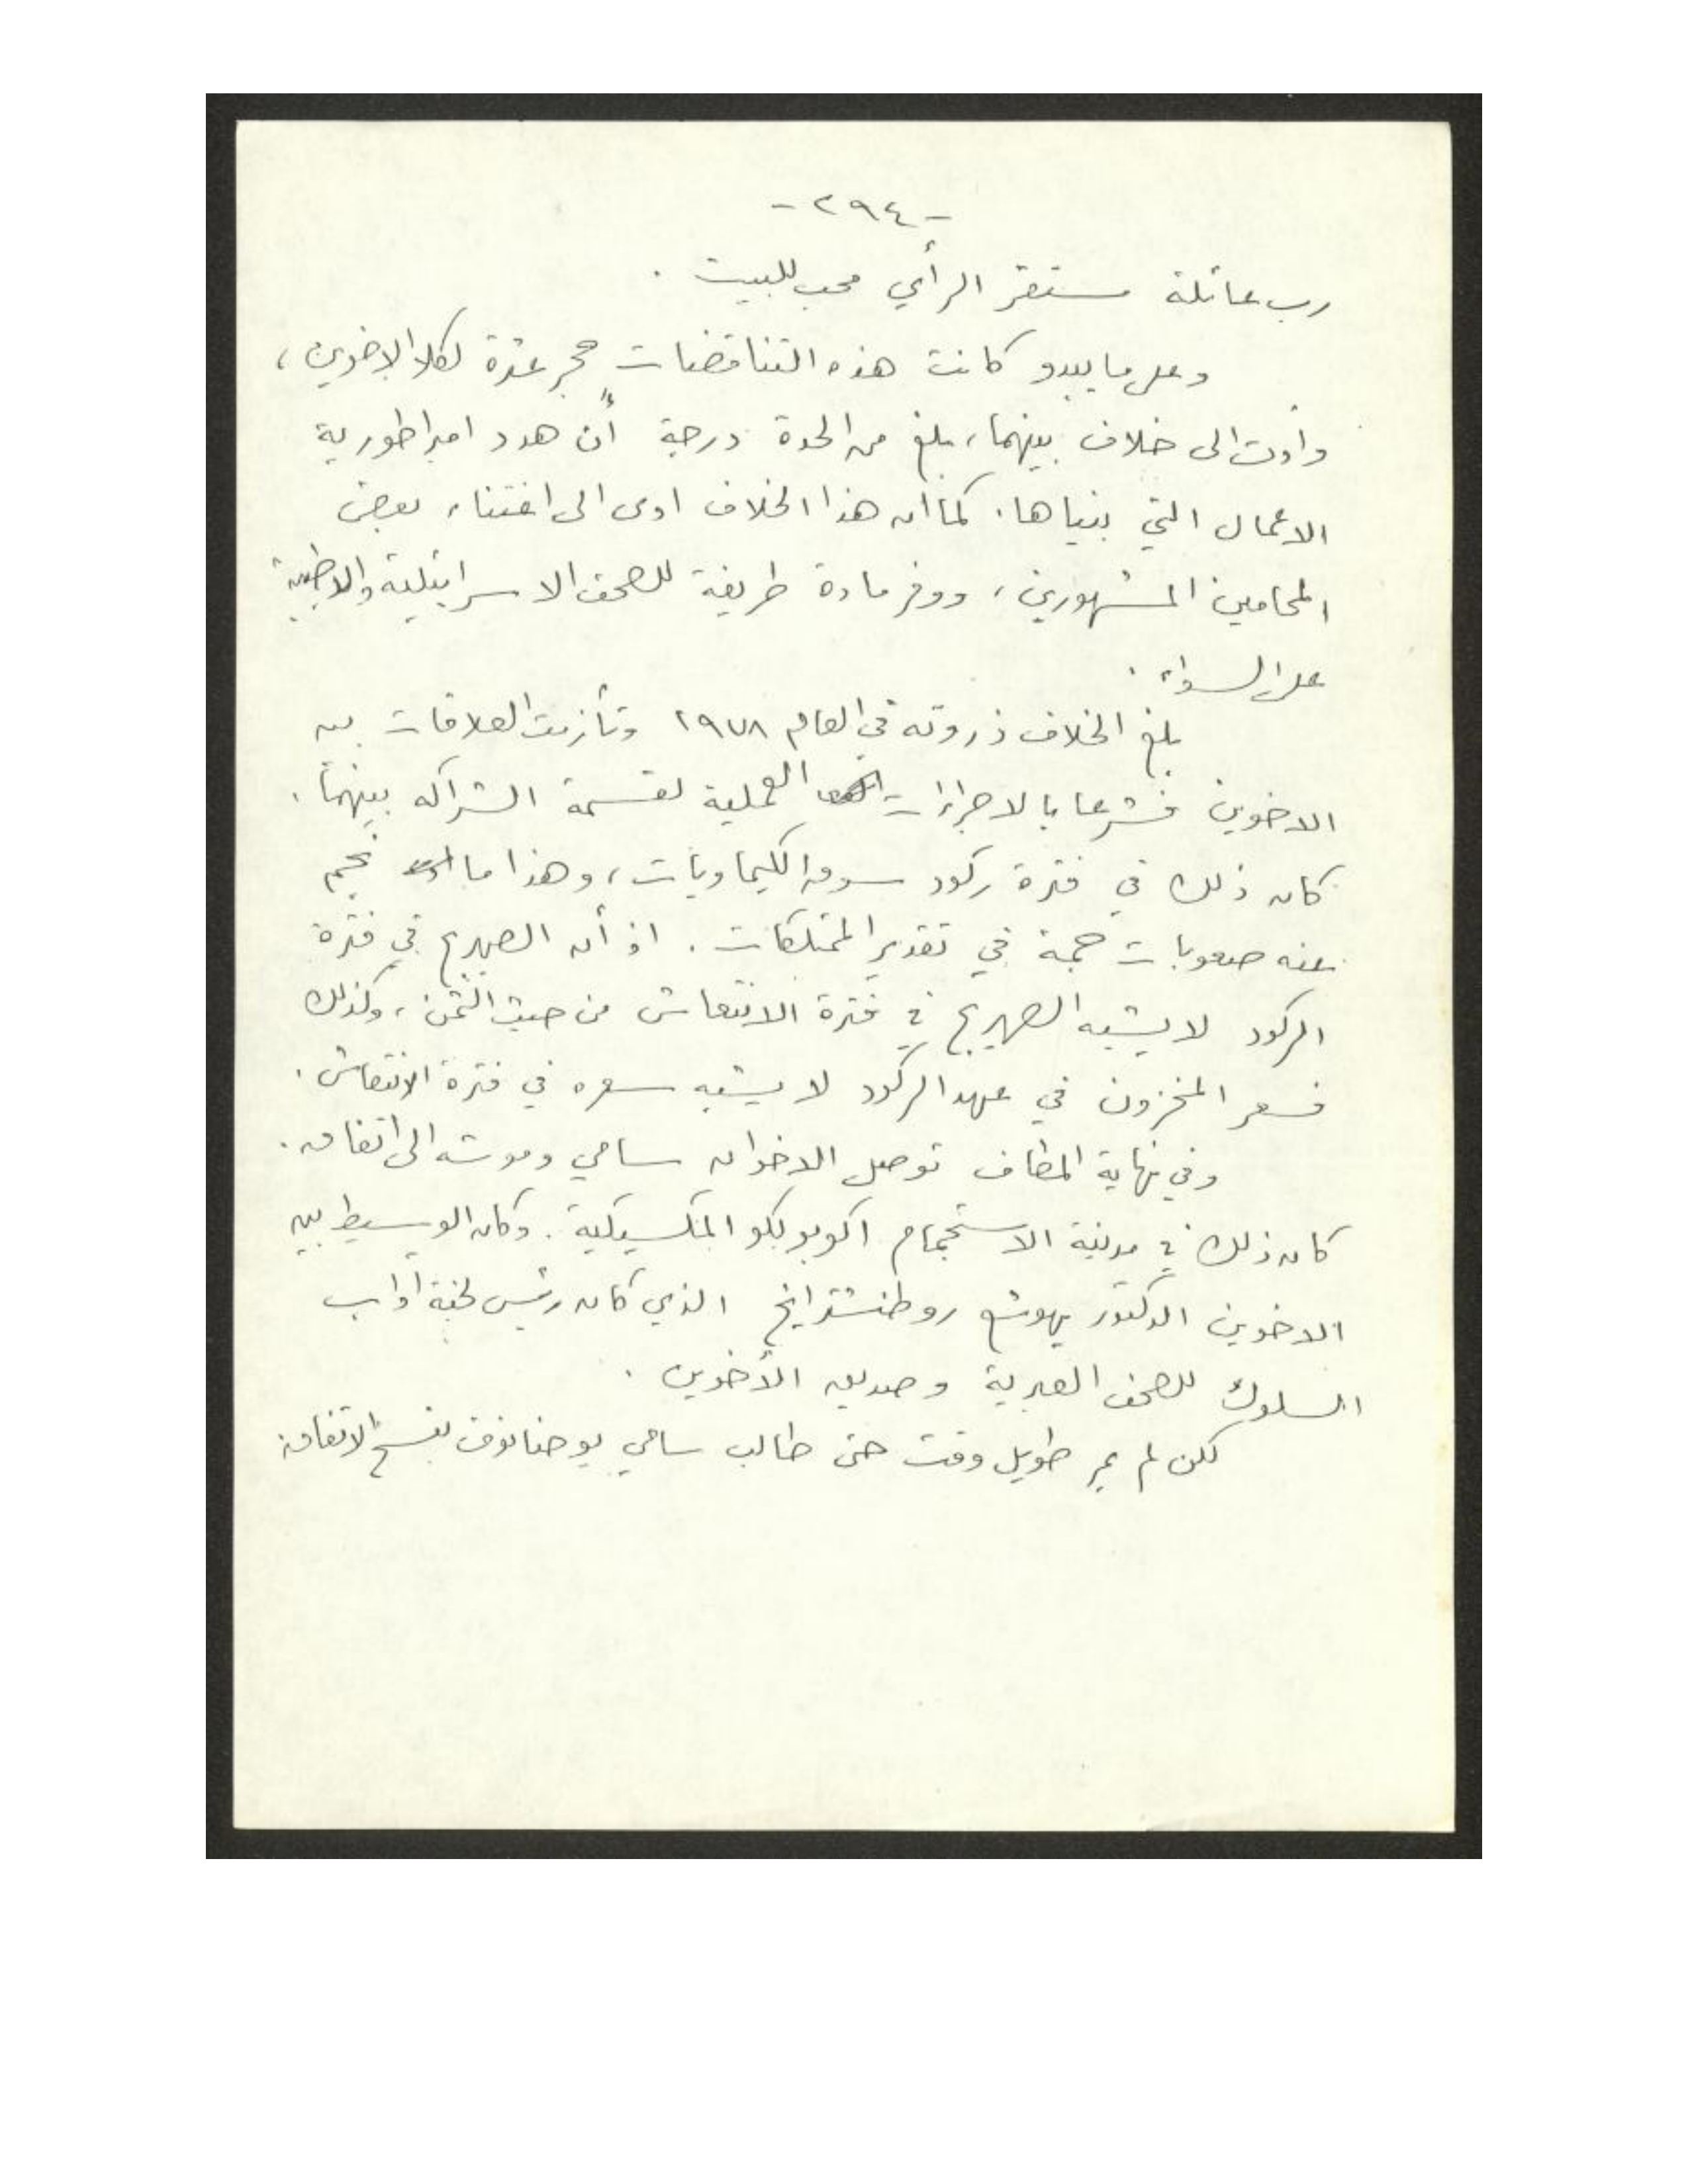 - ٢٩٤ -
رب عائلة مستقر الرأي محب للبيت .
وعلى ما يبدو كانت هذه التناقضات حجر عثرة لكلا الاخوين ،
وأدت الى خلاف بينهما ، بلغ من الحدة درجة أن هدد امبراطورية
الاعمال التي بنياها . كما ان هذا الخلاف ادى الى اغتناء بعض
المحامين المشهورين ، ووفر مادة طريفة للصحف الاسرائيلية والاجنبية
على السواء .
بلغ الخلاف ذروته في العام ١٩٧٨ وتأزمت العلاقات بين
الاخوين فشرعا بالاجراءات العملية لقسمة الشراكه بينهما .
كان ذلك في فترة ركود سوق الكيماويات ، وهذا ما نجم
عنه صعوبات جمة في تقدير الممتلكات . اذ أن الصهريج في فترة
الركود لا يشبه الصهريج في فترة الانتعاش من حيث الثمن ، وكذلك
فسعر المخزون في عهد الركود لا يشبه سعره في فترة الانتعاش .
وفي نهاية المطاف توصل الاخوان سامي وموشه الى اتفاق .
كان ذلك في مدينة الاستجمام اكوبولكو المكسيكية . وكان الوسيط بين
الاخوين الدكتور يهوشع روطنشترايخ الذي كان رئيس لجنة آداب
السلوك للصحف العبرية وصديق الأخوين .
لكن لم يمر طويل وقت حتى طالب سامي يوحنانوف بفسخ الاتفاق